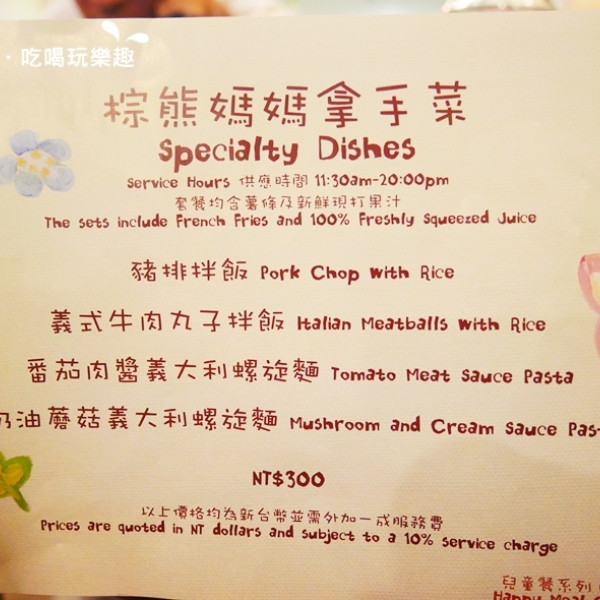 · 吃喝玩樂趣
棕熊媽媽拿手菜
Specialty Dishes
Service Hours 供應時間 11:30am-20:00pm
套餐均含薯條及新鮮現打果汁
The sets include French Fries and 100% Freshly Squeezed Juice
豬排拌飯 Pork Chop with Rice
義式牛肉丸子拌飯 Italian Meatballs with Rice
番茄肉醬義大利螺旋麵 Tomato Meat Sauce Pasta
奶油蘑菇義大利螺旋麵 Mushroom and Cream Sauce Past
NT$300
以上價格均為新台幣並需外加一成服務費
Prices are quoted in NT dollars and subject to a 10% service charge
兒童餐系列
Happy Meal